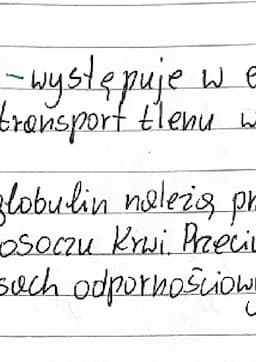 -występuje w e
transport tlenu w
globulin należą pr
osoczu krwi. Przeciw
sach odpornościow